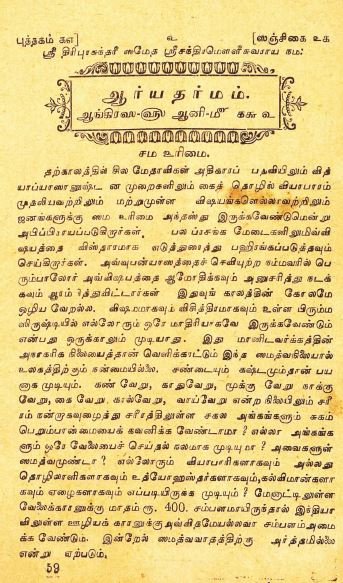 புத்தகம் கஎ] உ [ஸஞ்சிகை உக
ஸ்ரீ திரிபுரசுந்தரீ ஸமேத ஸ்ரீசந்திரமௌளீசுவராய நம:
ஆர்யதர்மம்.
ஆங்கிரஸ ஆனி
சம உரிமை.
தற்காலத்தில் சில மேதாவிகள் அதிகாரப் பதவியிலும் வித்
யாப்யாஸானுஷ்ட ன முறைகளிலும் கைத் தொழில் வியாபாரம்
முதலியவற்றிலும் மற்றுமுள்ள விஷயங்களெல்லாவற்றிலும்
ஜனங்களுக்கு சம உரிமை அந்தஸ்து இருக்கவேண்டுமென்று
அபிப்பிராயப்படுகிறார்கள். பல ப்ரசங்க மேடைகளிலும்இவ்வி
ஷயத்தை விஸ்தாரமாக எடுத்துரைத்து பஹிரங்கப்படுத்தவும்
செய்கிறார்கள். அவ்வுபன்யாஸத்தைச் செவியுற்ற நம்மவரில் பெ
ரும்பாலோர் அவ்விஷயத்தை ஆமோதிக்கவும் அனுசரித்து நடக்
கவும் ஆரம்பித்துவிட்டார்கள் இதுவுங் காலத்தின் கோலமே
ஒழிய வேறல்ல. விஷமமாகவும் விசித்ரமாகவும் உள்ள பிரும்ம
ஸிருஷ்டியில் எல்லோரும் ஒரே மாதிரியாகவே இருக்கவேண்டும்
என்பது ஒருக்காலும் முடியாது. இது மானிடவர்க்கத்தின்
அநாகரிக நிலையைத்தான் வெளிக்காட்டும் இந்த ஸமத்வநிலையால்
உலகத்திற்கும் நன்மையில்லை. சண்டையும் கஷ்டமும்தான் பய
னாக முடியும். கண் வேறு, காதுவேறு, மூக்கு வேறு நாக்கு
வேறு, கை வேறு. கால்வேறு, வாய்வேறு என்ற நிலையிலும் சரீ
ரம் நன்றாகவுமைந்து சரீரத்திலுள்ள சகல அங்கங்களும் சுகம்
பெறும்பான்மையைக் கவனிக்க வேண்டாமா? எல்லா அங்கங்க
ளும் ஒரே வேலையைச் செய்தால் நலமாக முடியுமா? அவைகளுள்
ஸமத்வமுண்டா? எல்லோரும் வியாபாரிகளாகவும் அல்லது
தொழிலாளிகளாகவும் உத்யோஹஸ்தர்களாகவும், கல்விமான்களா
கவும் ஏழைகளாகவும் எப்படியிருக்க முடியும்? மேனாட்டிலுள்ள
வேலைக்காரனுக்கு மாதம் ரூ. 400. சம்பளமாயிருந்தால் இந்தியா
விலுள்ள ஊழியக் காரனுக்கு அவ்விதமேயல்லவா சம்பளம்அமை
க்க வேண்டும். இன்றேல் ஸமத்வவாதத்திற்கு அர்த்தமில்லை
என்று ஏற்படும்.
59